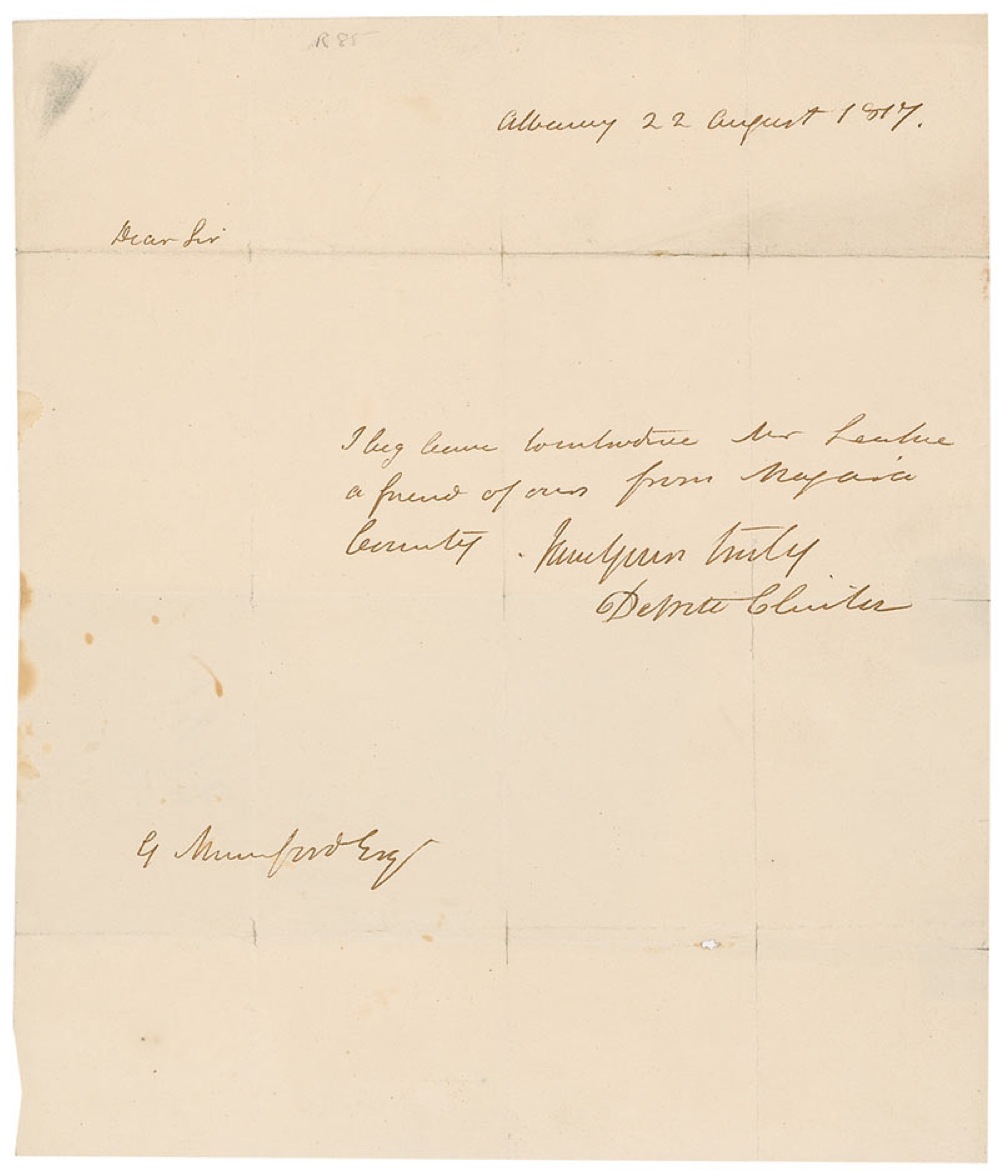 R 85
Albany 22 August 1817.
Dear Sir
I beg leave to introduce Mr
a friend of ours from Niagara
County. truly
DeWitt Clinton
G Mumford Esqr